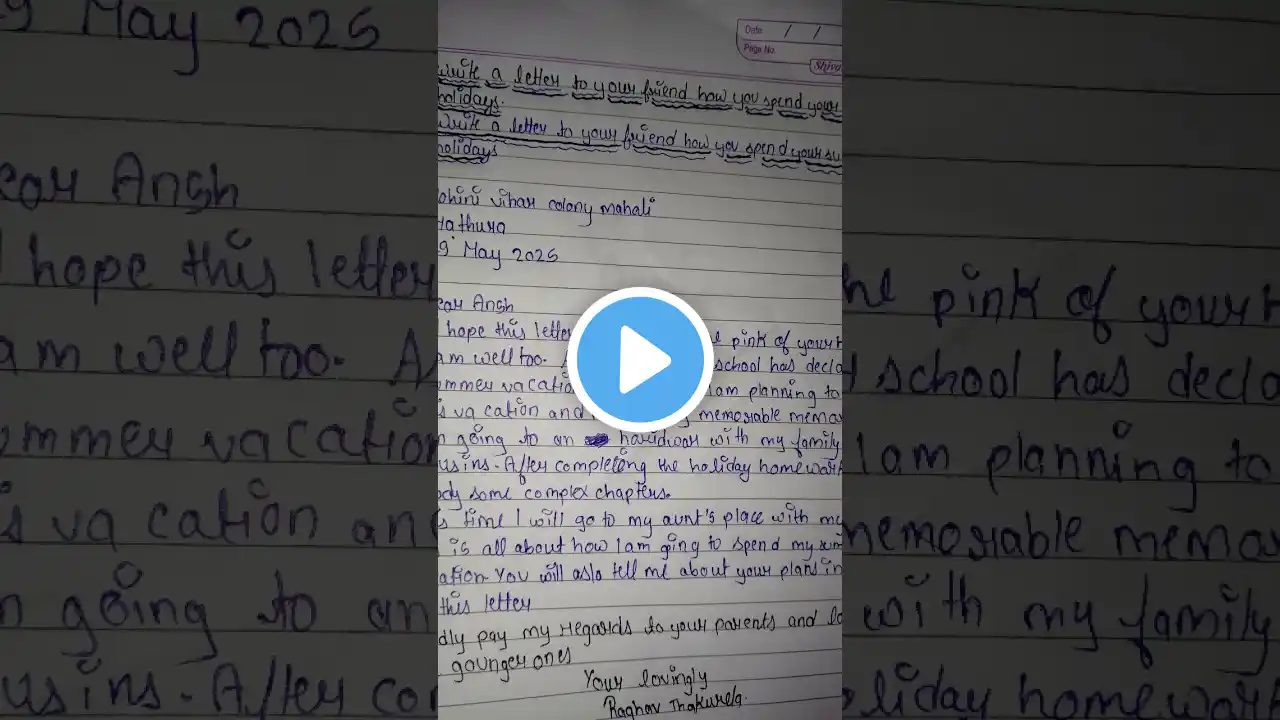 Date / /
Page No.
Shiva
write a letter to your friend how you spend your
holidays.
write a letter to your friend how you spend your su
holidays
ohini vihar colony mahali
athura
9 May 2025
ear Angh
hope this letter pink of your h
am well too. school has decla
ommer vacatio I am planning to
s va cation and memorable memor
n going to an haridwar with my family
usins. After completeng the holiday homework
dy some complex chapters.
s time I will go to my aunt's place with my
is all about how I am going to spend my sum
ation. You will aslo tell me about your plans in
this letter
dly pay my regards to your parents and lo
gounger ones
Your lovingly
Raghav Thakurela.